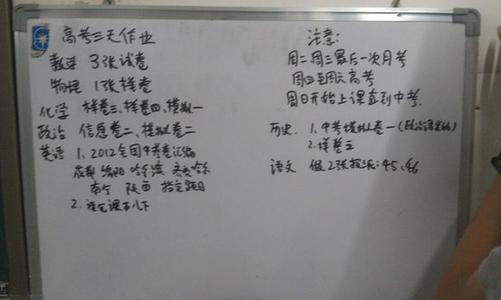 高考三天作业
数学 3张试卷
物理 1张样卷
化学 样卷三、样卷四、模拟一
政治 信息卷二、模拟卷二
英语 1、2012全国中考卷汇编
成都 绵阳 哈尔滨 齐齐哈尔
南宁 陕西 指定题目
2.
注意:
周二周三最后一次月考
周四至周六高考
周日开始上课直到中考.
历史 1.中考模拟卷一(政治课
2.样卷三
语文 做2张报纸:45、46